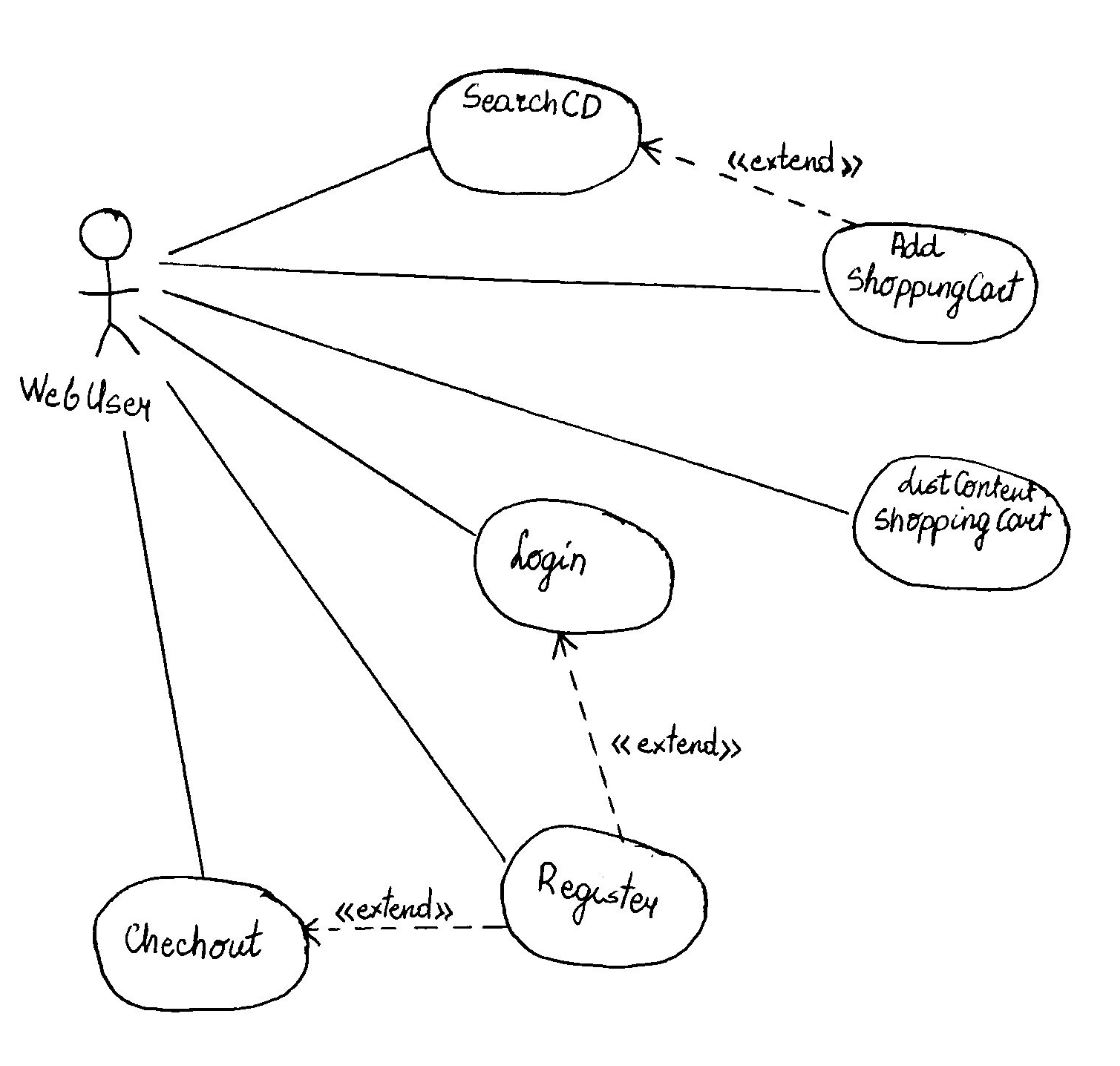 SearchCD
<<extend>>
Add
ShoppingCart
WebUser
ListContent
ShoppingCart
Login
<<extend>>
Register
<<extend>>
Chechout